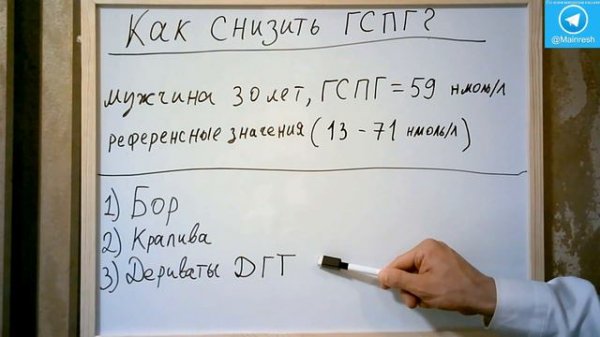 Как снизить ГСПГ?
@Mainresh
мужчина 30 лет, ГСПГ = 59 нмоль/л
референсные значения (13 - 71 нмоль/л)
1) Бор
2) Крапива
3) Дериваты ДГТ